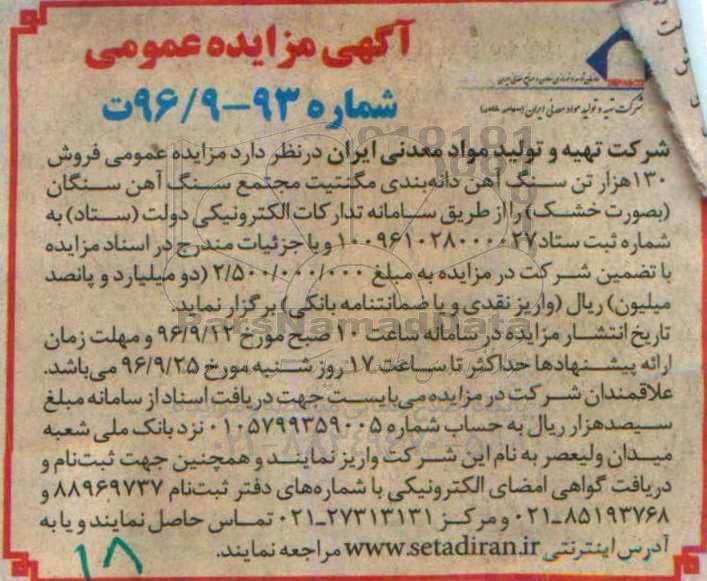 آگهی مزایده عمومی
شماره ۹۳-۹۶/۹ت
شرکت تهیه و تولید مواد معدنی ایران (سهامی خاص)
شرکت تهیه و تولید مواد معدنی ایران درنظر دارد مزایده عمومی فروش
۱۳۰هزار تن سنگ آهن دانه‌بندی مگنتیت مجتمع سنگ آهن سنگان
(بصورت خشک) را از طریق سامانه تدارکات الکترونیکی دولت (ستاد) به
شماره ثبت ستاد ۱۰۰۹۶۱۰۲۸۰۰۰۰۲۷ و با جزئیات مندرج در اسناد مزایده
با تضمین شرکت در مزایده به مبلغ ۲/۵۰۰/۰۰۰/۰۰۰ (دو میلیارد و پانصد
میلیون) ریال (واریز نقدی و یا ضمانتنامه بانکی) برگزار نماید.
تاریخ انتشار مزایده در سامانه ساعت ۱۰ صبح مورخ ۹۶/۹/۱۲ و مهلت زمان
ارائه پیشنهادها حداکثر تا ساعت ۱۷ روز شنبه مورخ ۹۶/۹/۲۵ می‌باشد.
علاقمندان شرکت در مزایده می‌بایست جهت دریافت اسناد از سامانه مبلغ
سیصدهزار ریال به حساب شماره ۰۱۰۵۷۹۹۳۵۹۰۰۵ نزد بانک ملی شعبه
میدان ولیعصر به نام این شرکت واریز نمایند و همچنین جهت ثبت‌نام و
دریافت گواهی امضای الکترونیکی با شماره‌های دفتر ثبت‌نام ۸۸۹۶۹۷۳۷ و
۰۲۱-۸۵۱۹۳۷۶۸ و مرکز ۰۲۱-۲۷۳۱۳۱۳۱ تماس حاصل نمایند و یا به
آدرس اینترنتی www.setadiran.ir مراجعه نمایند.
۱۸
ParsNamadData